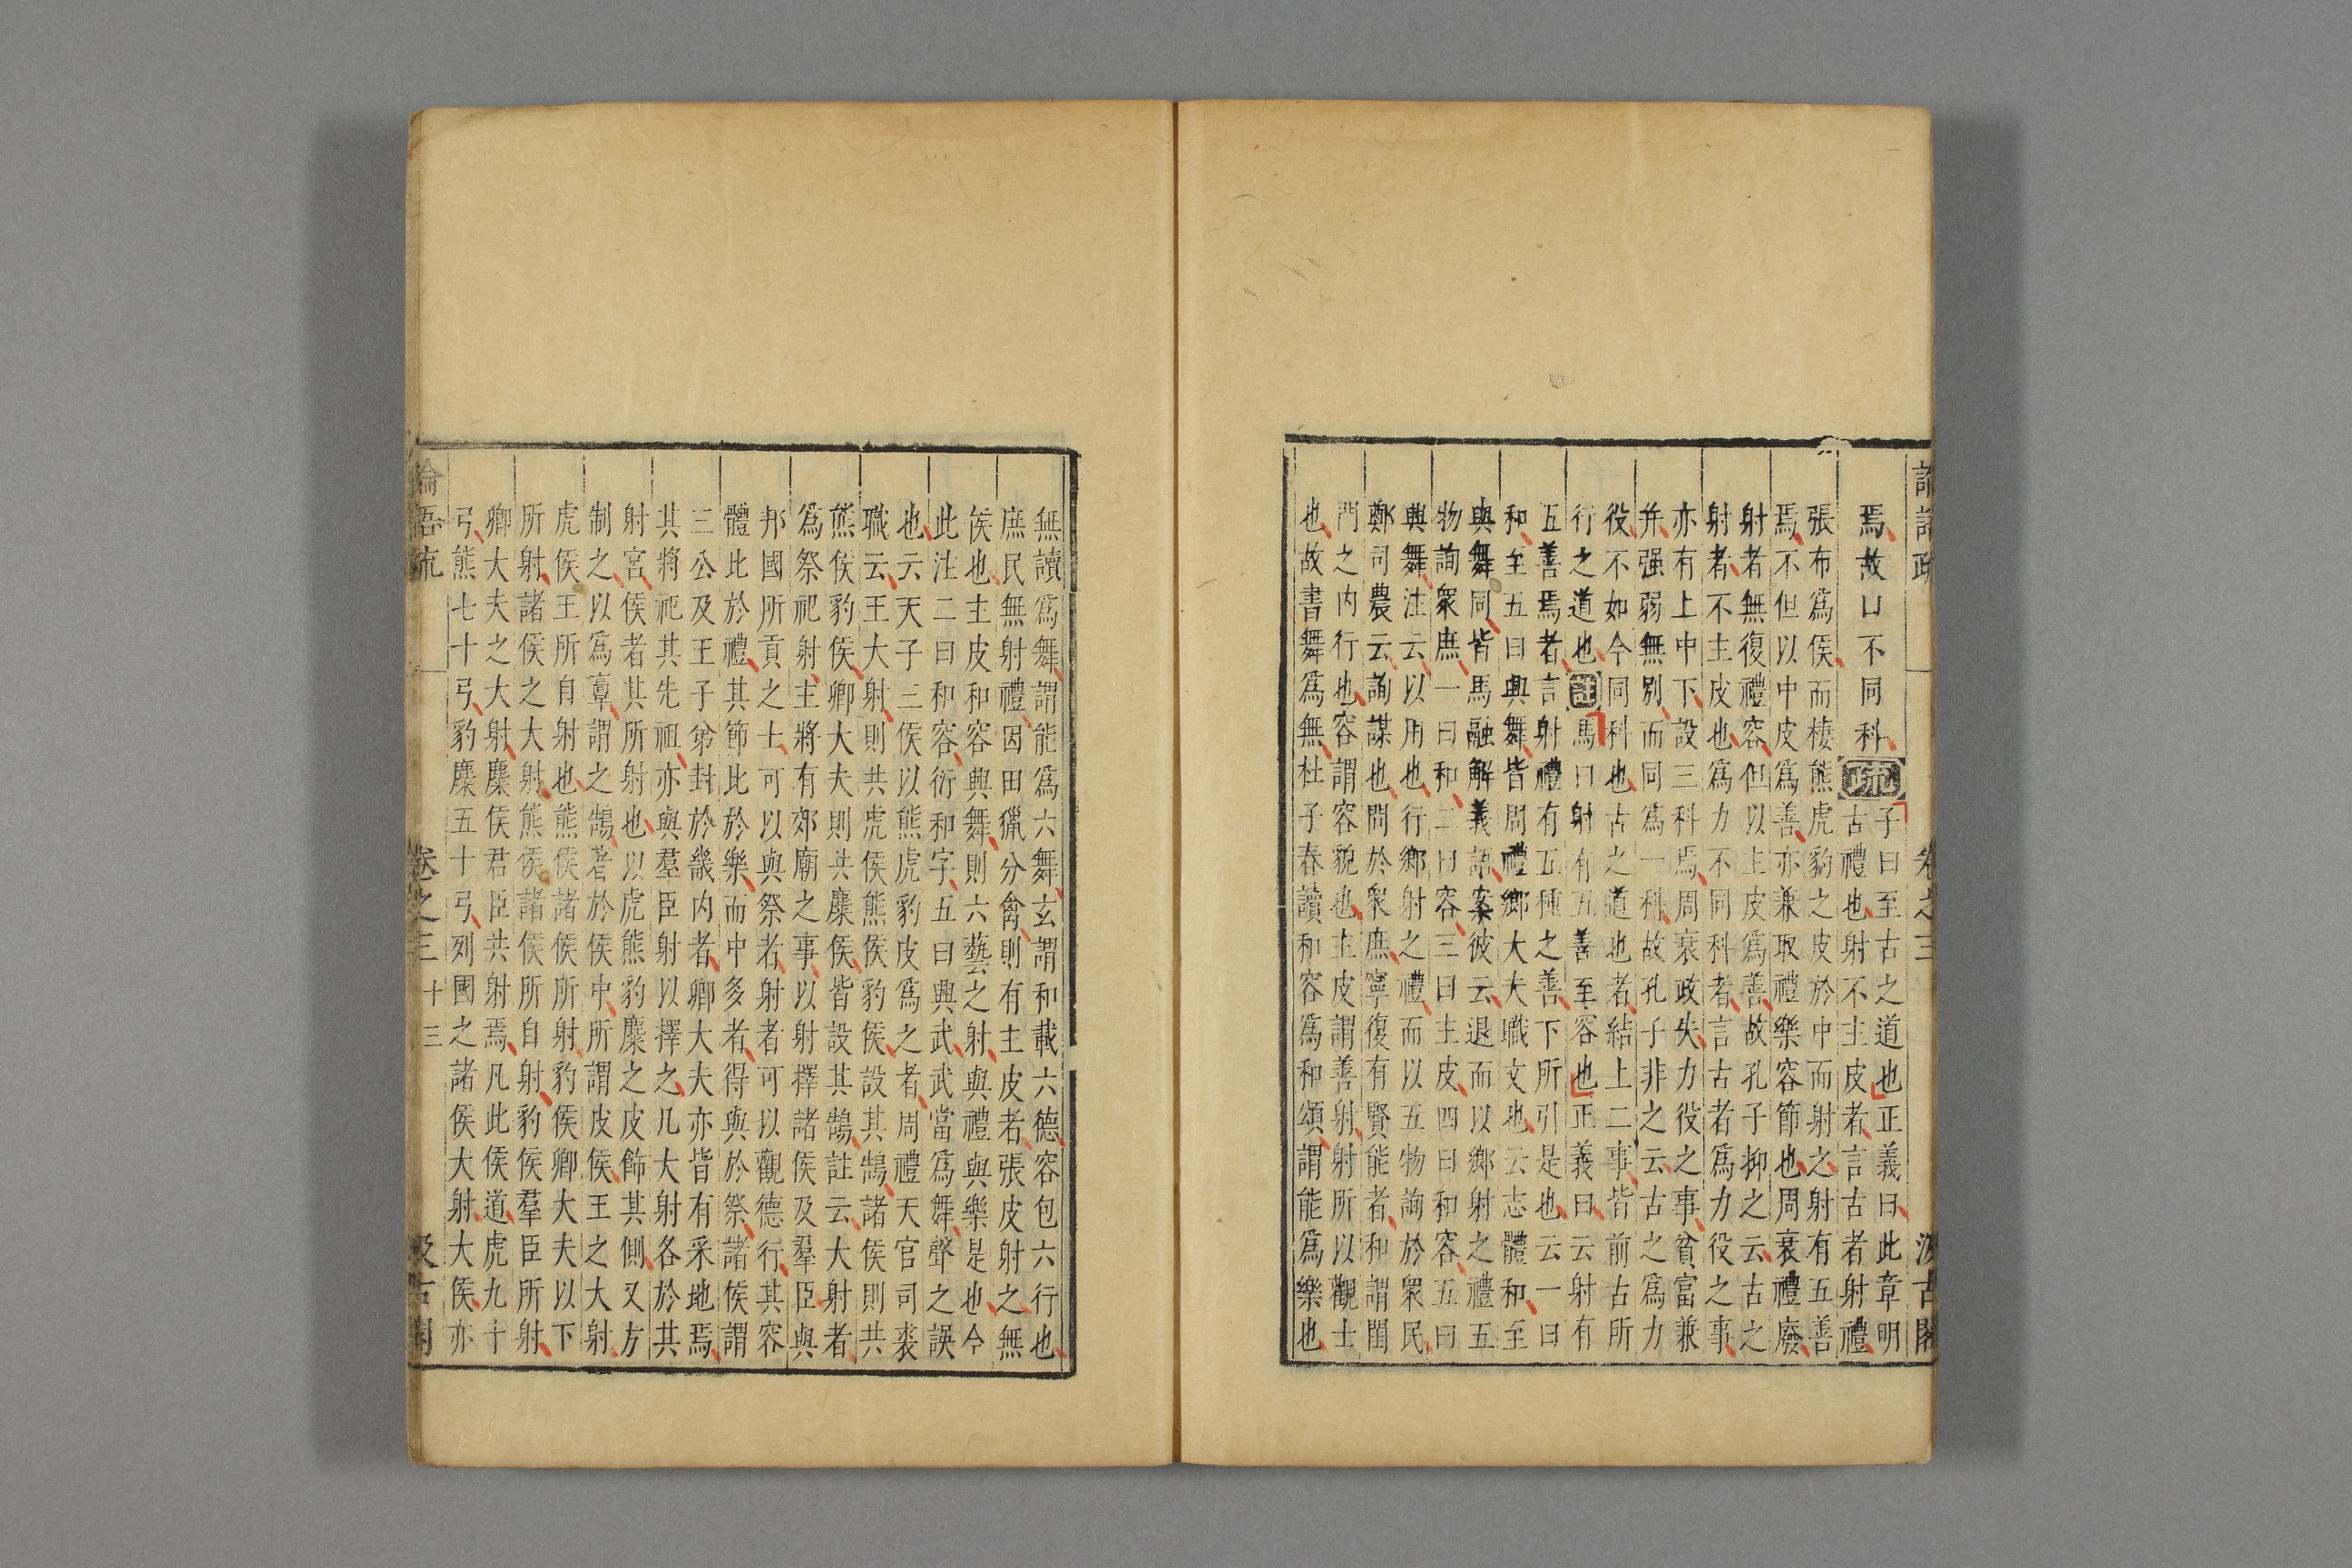 論語疏 卷之三 汲古閣
焉故曰不同科疏
子曰至古之道也正義曰此章明
古禮也射不主皮者言古者射禮
張布爲侯而棲熊虎豹之皮於中而射之射有五善
焉不但以中皮爲善亦兼取禮樂容節也周衰禮廢
射者無復禮容但以主皮爲善故孔子抑之云古之
射者不主皮也爲力不同科者言古者爲力役之事
亦有上中下設三科焉周衰政失力役之事貧富兼
并强弱無别而同爲一科故孔子非之云古之爲力
役不如今同科也古之道也者結上二事皆前古所
行之道也註馬曰射有五善至容也正義曰云射有
五善焉者言射禮有五種之善下所引是也云一曰
和至五曰興舞皆周禮鄉大夫職文也云志體和至
與舞同皆馬融解義語案彼云退而以鄉射之禮五
物詢衆庶一曰和二曰容三曰主皮四曰和容五曰
興舞注云以用也行鄉射之禮而以五物詢於衆民
鄭司農云詢謀也問於衆庶寧復有賢能者和謂閨
門之内行也容謂容貌也主皮謂善射射所以觀士
也故書舞爲無杜子春讀和容爲和頌謂能爲樂也
無讀爲舞謂能爲六舞玄謂和載六德容包六行也
庶民無射禮因田獵分禽則有主皮者張皮射之無
侯也主皮和容興舞則六藝之射與禮與樂是也今
此注二曰和容衍和字五曰興武武當爲舞聲之誤
也云天子三侯以熊虎豹皮爲之者周禮天官司裘
職云王大射則共虎侯熊侯豹侯設其鵠諸侯則共
熊侯豹侯卿大夫則共麋侯皆設其鵠註云大射者
爲祭祀射主將有郊廟之事以射擇諸侯及羣臣與
邦國所貢之士可以與祭者射者可以觀德行其容
體此於禮其節比於樂而中多者得與於祭諸侯謂
三公及王子弟封於畿内者卿大夫亦皆有采地焉
其將祀其先祖亦與羣臣射以擇之凡大射各於其
射宮侯者其所射也以虎熊豹麋之皮飾其側又方
制之以爲𩫳謂之鵠著於侯中所謂皮侯王之大射
虎侯王所自射也熊侯諸侯所射豹侯卿大夫以下
所射諸侯之大射熊侯諸侯所自射豹侯羣臣所射
卿大夫之大射麋侯君臣共射焉凡此侯道虎九十
弓熊七十弓豹麋五十弓列國之諸侯大射大侯亦
論語疏 卷之三 十三 汲古閣